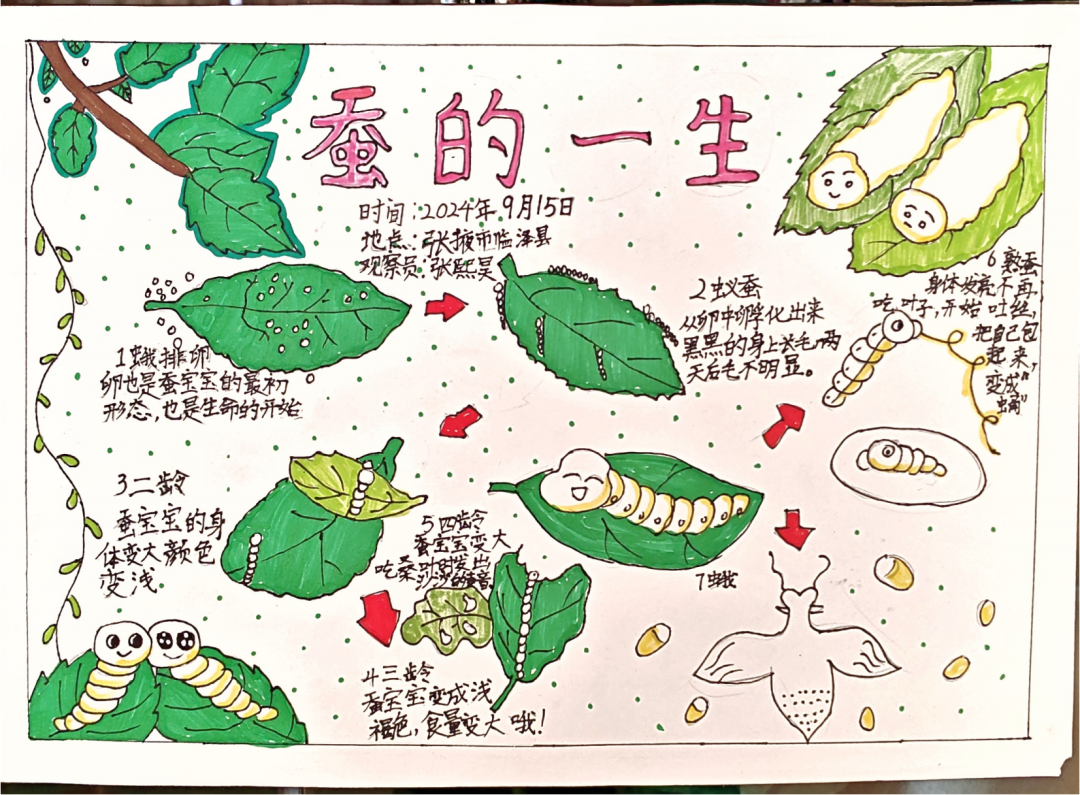 蚕的一生
时间:2024年9月15日
地点:张掖市临泽县
观察员:张熙昊
1蛾排卵
卵也是蚕宝宝的最初
形态,也是生命的开始
2蚁蚕
从卵中孵化出来
黑黑的身上长毛,两
天后毛不明显。
3二龄
蚕宝宝的身
体变大颜色
变浅
4三龄
蚕宝宝变成浅
褐色,食量变大哦!
5四龄
蚕宝宝变大
吃桑叶时发出
沙沙的声音
6熟蚕
身体发亮不再
吃叶子,开始吐丝,
把自己包
起来,
变成“
蛹”
7蛾